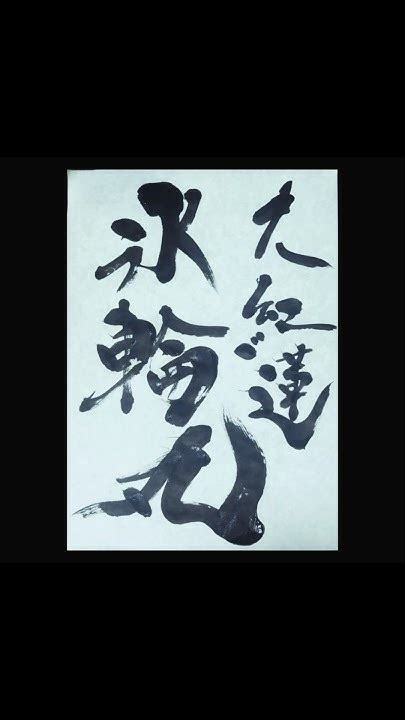 大紅蓮
氷輪丸